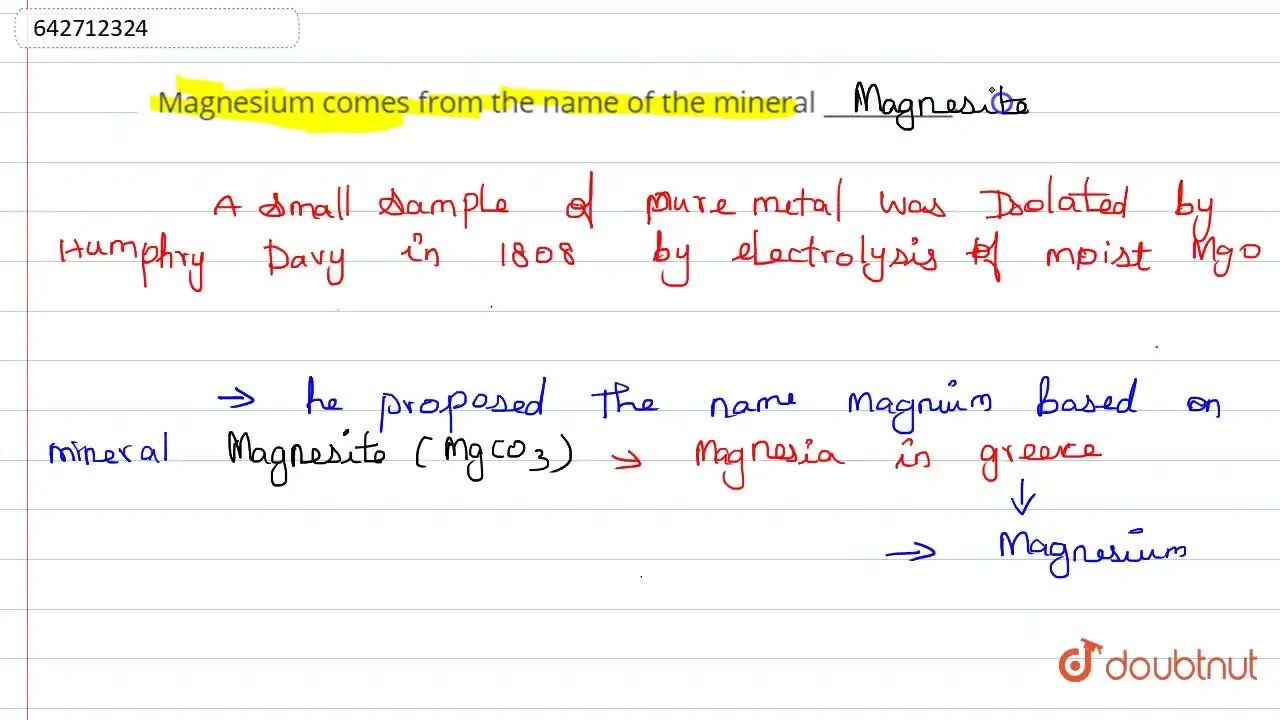 642712324
Magnesium comes from the name of the mineral ________ Magnesite
A small sample of pure metal was Isolated by
Humphry Davy in 1808 by electrolysis of moist MgO
→ he proposed the name magnium based on
mineral Magnesite (MgCO3) → Magnesia in greece
↓
→ Magnesium
doubtnut